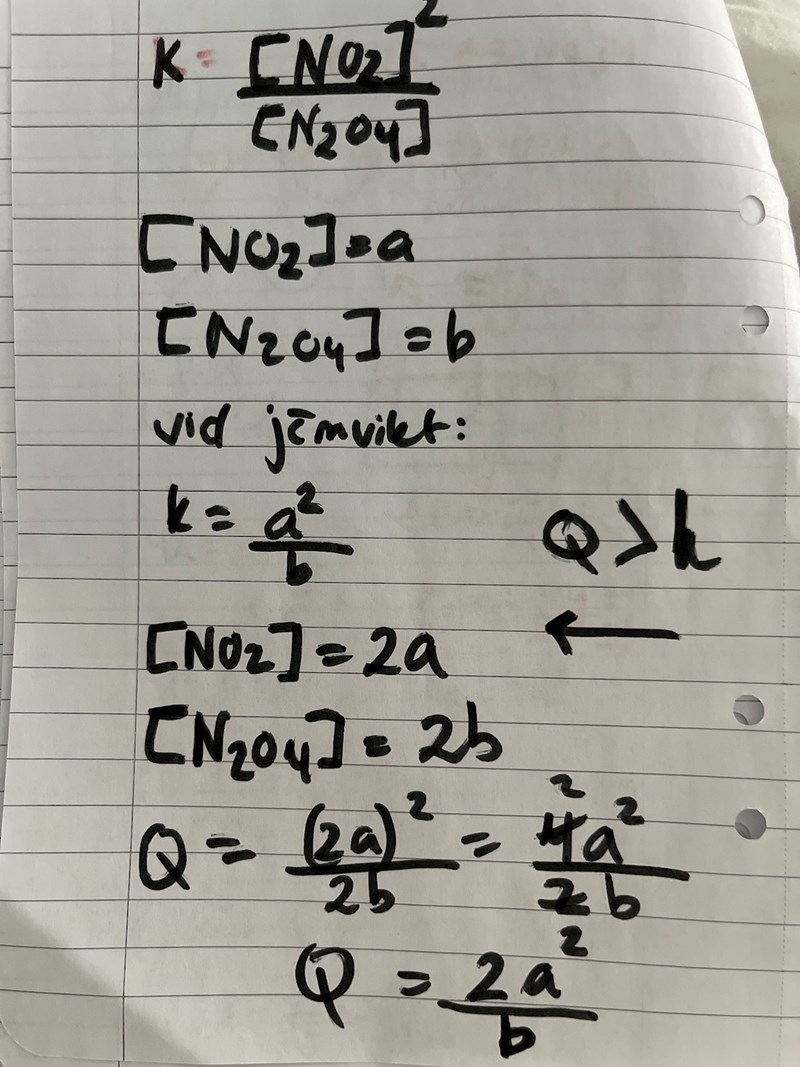 K = [NO₂]² / [N₂O₄]
[NO₂] = a
[N₂O₄] = b
vid jēmvikt:
k = a² / b
Q > k
[NO₂] = 2a
←
[N₂O₄] = 2b
Q = (2a)² / 2b = ~~4~~² a² / ~~2~~ b
Q = 2a² / b